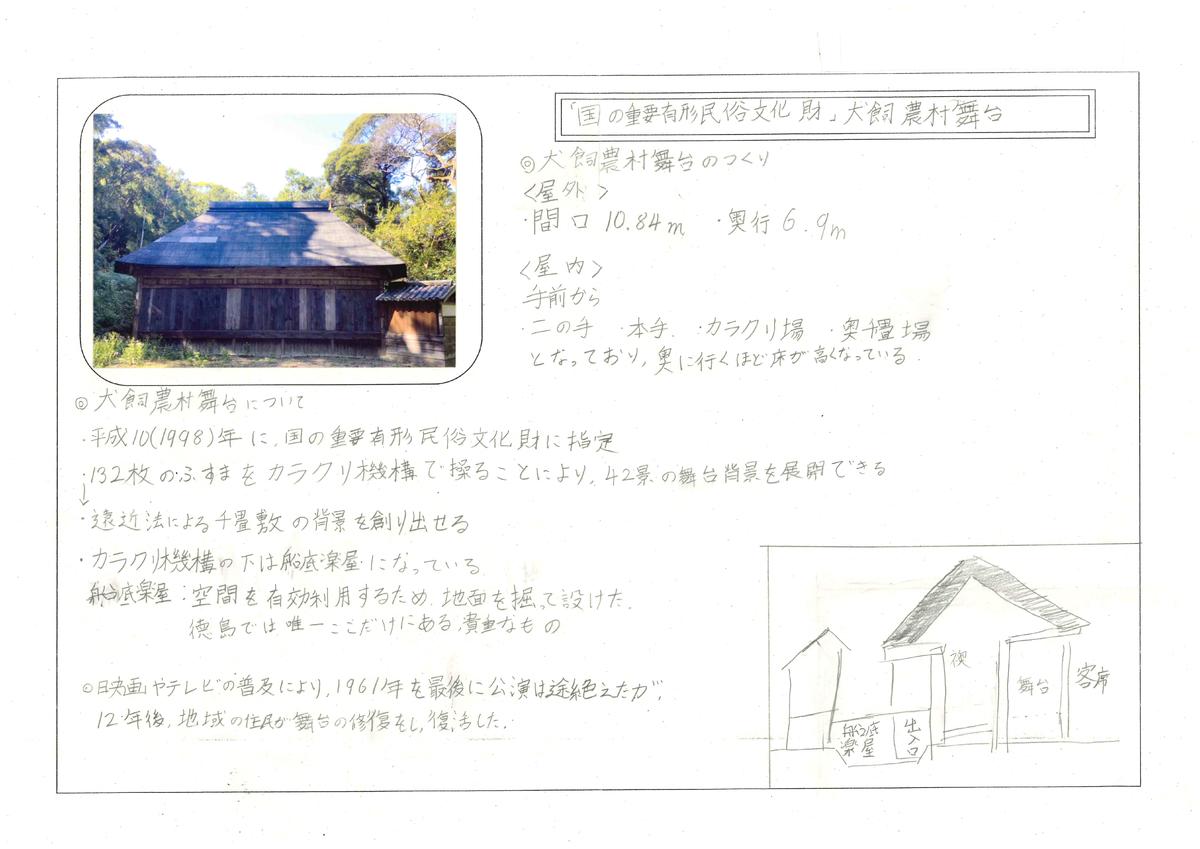 「国の重要有形民俗文化財」犬飼農村舞台
◎犬飼農村舞台のつくり
〈屋外〉
・間口 10.84m ・奥行 6.9m
〈屋内〉
手前から
・二の手 ・本手 ・カラクリ場 ・奥千畳場
となっており、奥に行くほど床が高くなっている。
◎犬飼農村舞台について
・平成10(1998)年に、国の重要有形民俗文化財に指定
・132枚のふすまをカラクリ機構で操ることにより、42景の舞台背景を展開できる
↓
・遠近法による千畳敷の背景を創り出せる
・カラクリ機構の下は船底楽屋になっている
船底楽屋:空間を有効利用するため、地面を掘って設けた。
徳島では唯一ここだけにある、貴重なもの
◎映画やテレビの普及により、1961年を最後に公演は途絶えたが、
12年後、地域の住民が舞台の修復をし、復活した。
襖
舞台
客席
船底
楽屋
出入口